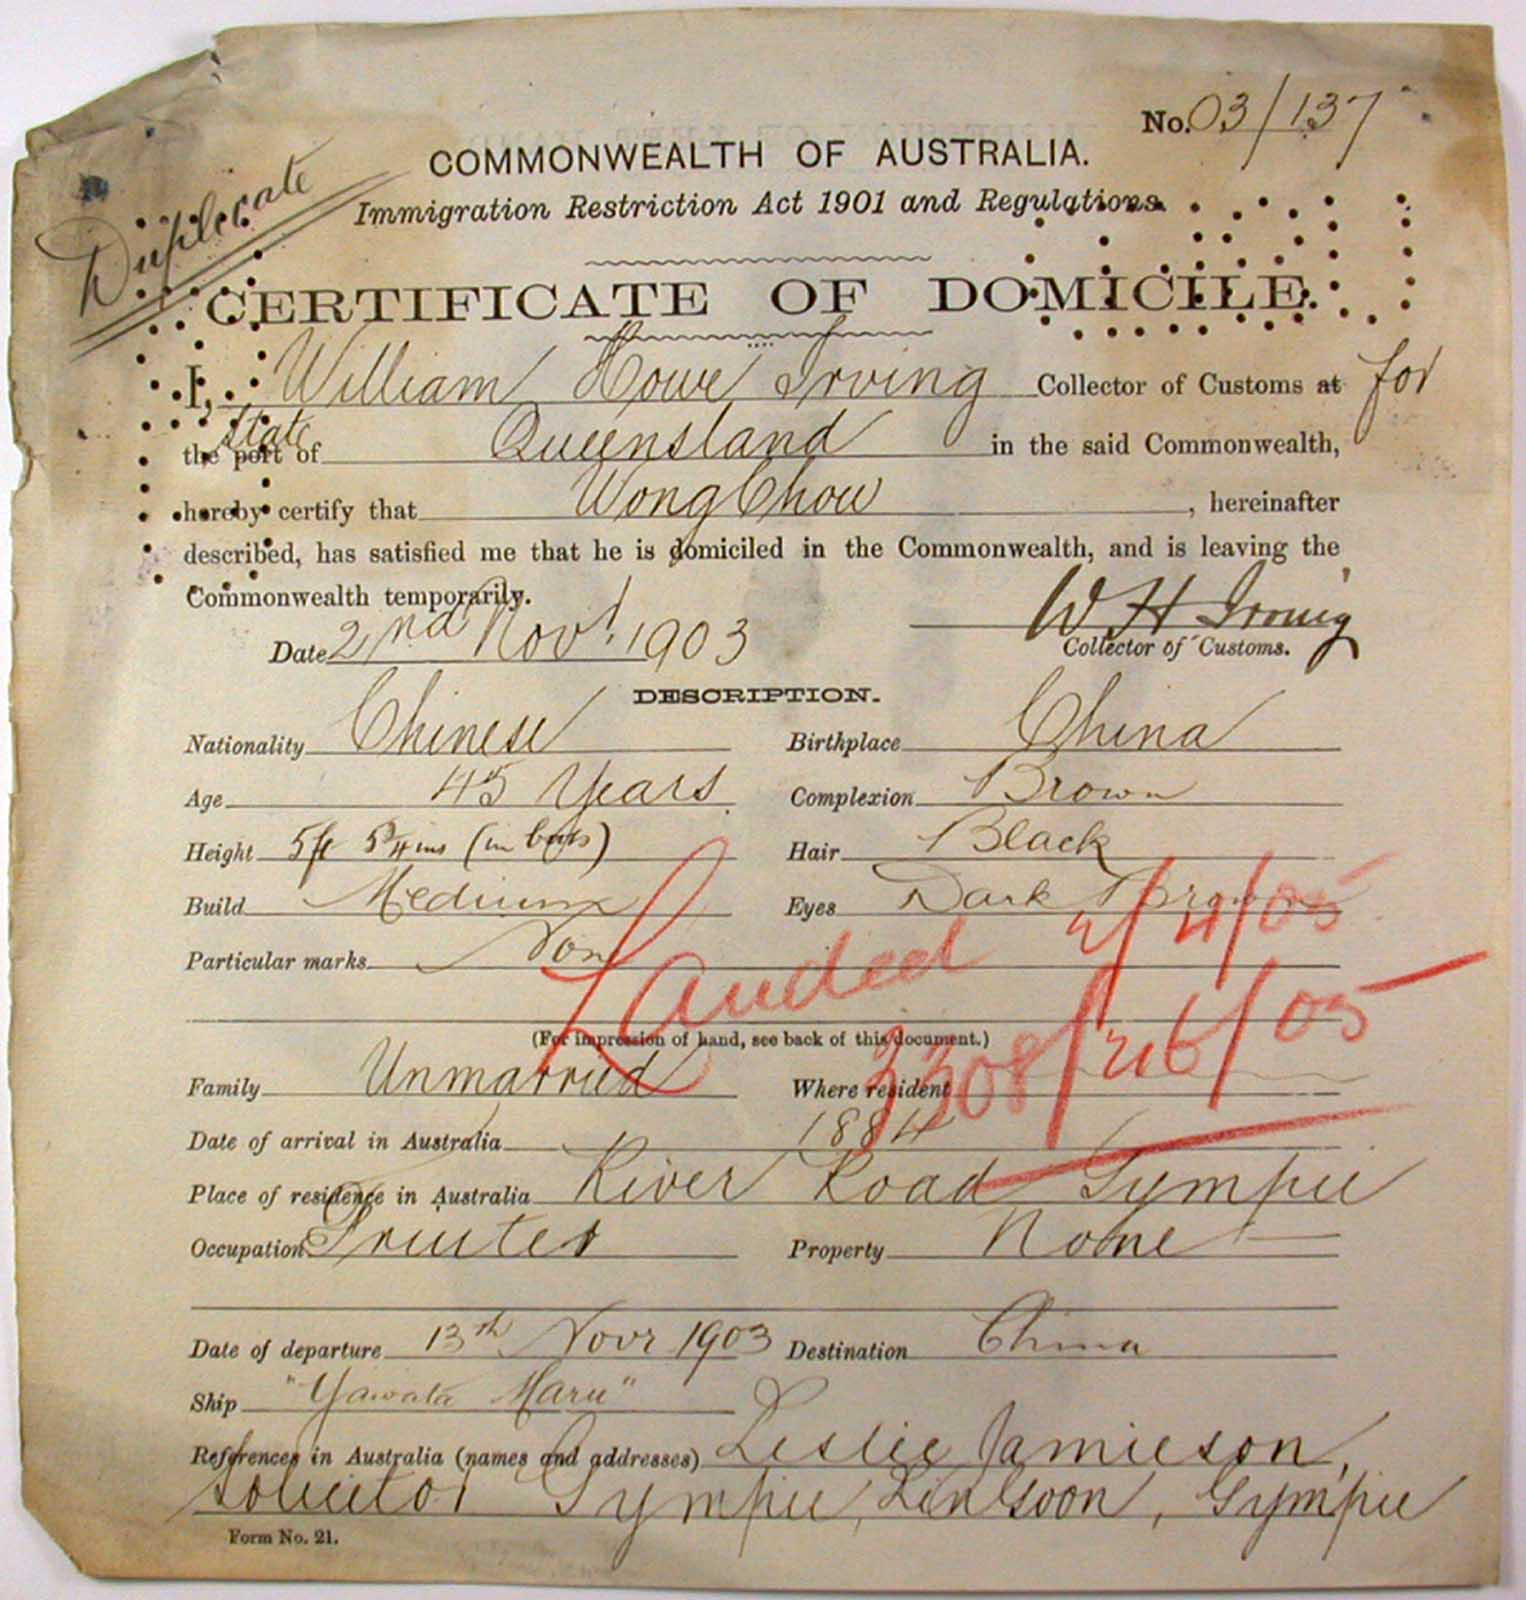 No. 03/137
Duplicate
COMMONWEALTH OF AUSTRALIA.
Immigration Restriction Act 1901 and Regulations.
CERTIFICATE OF DOMICILE.
I, William Howe Irving Collector of Customs at for
State
the port of Queensland in the said Commonwealth,
hereby certify that Wong Chow, hereinafter
described, has satisfied me that he is domiciled in the Commonwealth, and is leaving the
Commonwealth temporarily.
W H Irving
Date 2nd Novr. 1903 Collector of Customs.
DESCRIPTION.
Nationality Chinese Birthplace China
Age 45 Years Complexion Brown
Height 5ft 5¾ ins (in boots) Hair Black
Build Medium Eyes Dark Brown
Particular marks
Landed 2/4/05
(For impression of hand, see back of this document.)
Family Unmarried Where resident
Date of arrival in Australia 1884
Place of residence in Australia River Road Gympie
Occupation Fruiter Property None
Date of departure 13th Novr 1903 Destination China
Ship "Yawata Maru"
References in Australia (names and addresses) Leslie Jamieson,
Solicitor Gympie, , Gympie
Form No. 21.